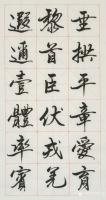 垂拱平章愛育
黎首臣伏戎羌
遐邇壹體率賓